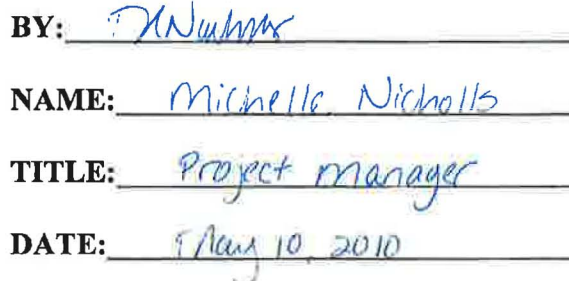 BY:
NAME: Michelle Nicholls
TITLE: Project manager
DATE: May 10, 2010